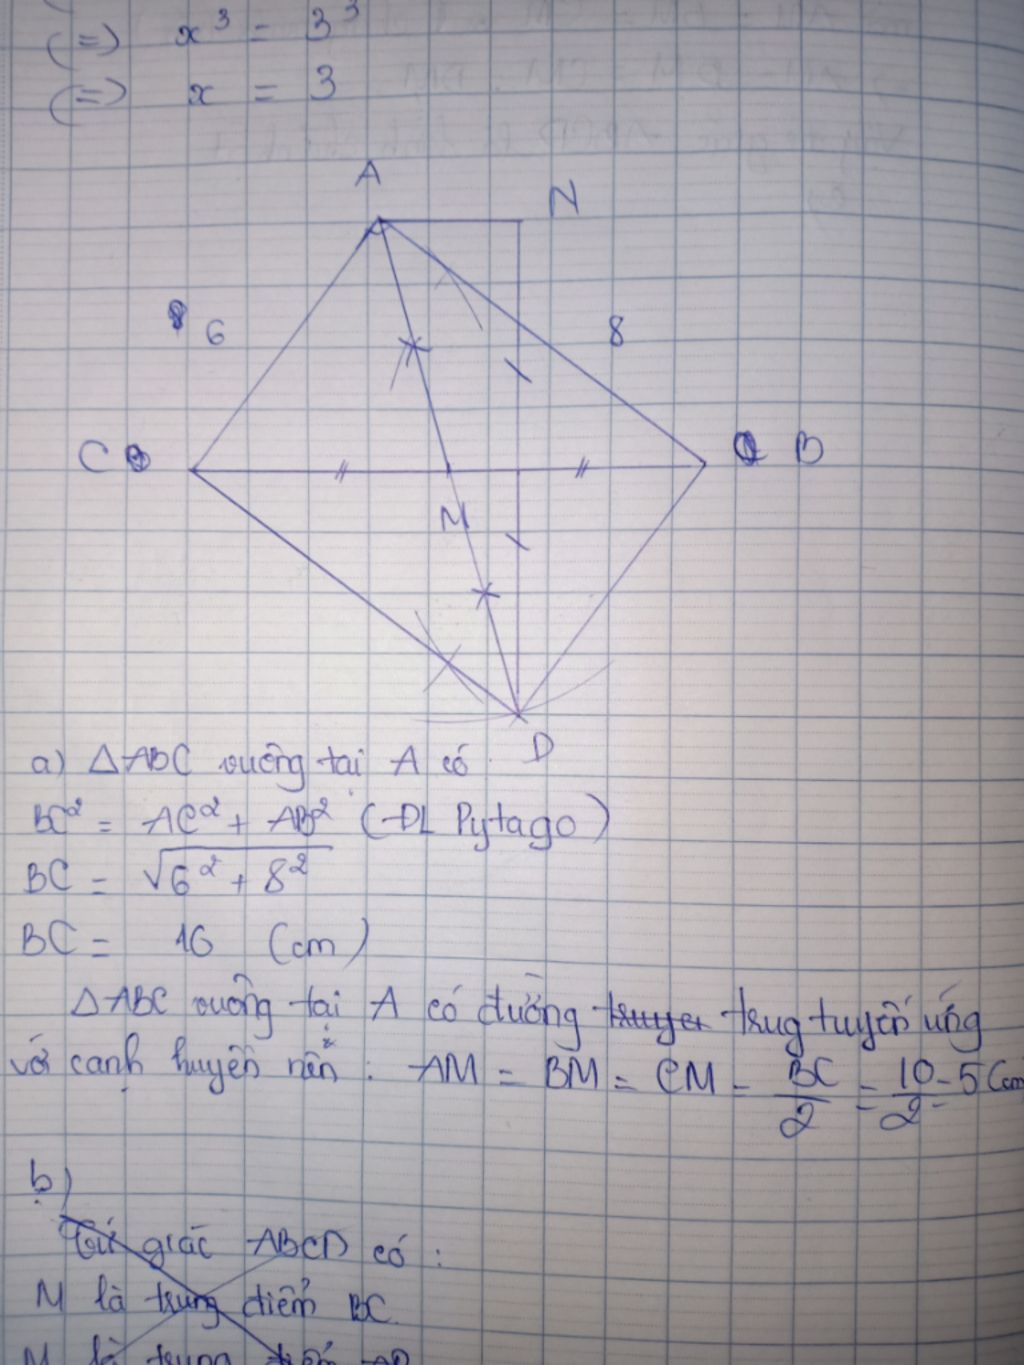 (=) x³ = 3³
(=) x = 3
A
N
6
8
C
B
M
D
a) ΔABC vuông tại A có
BC² = AC² + AB² (ĐL Pytago)
BC = √6² + 8²
BC = 10 (cm)
ΔABC vuông tại A có đường trug tuyến ứng
với cạnh huyền nên : AM = BM = CM = BC/2 = 10/2 = 5 (cm
b)
Tứ giác ABCD có :
M là trung điểm BC
M là trung điểm AD